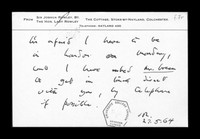 FROM SIR JOSHUA ROWLEY, BT.
THE HON. LADY ROWLEY
THE COTTAGE, STOKE-BY-NAYLAND, COLCHESTER
I'm afraid I have to be
in London on Monday,
and I have asked
to get in touch direct
with you, by telephone
if possible.